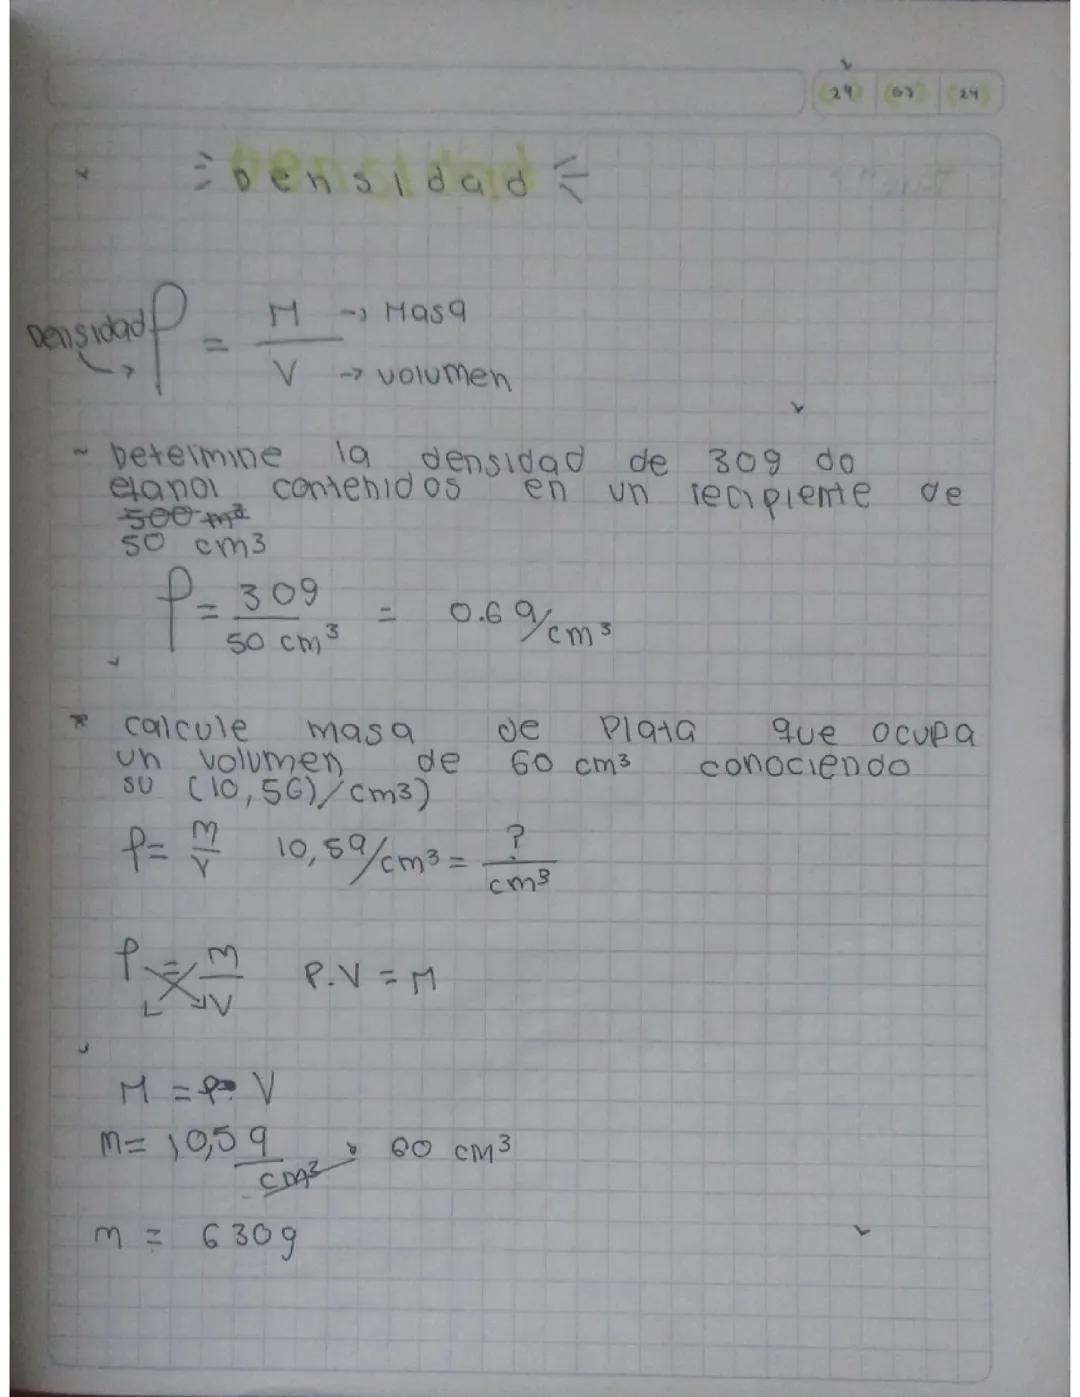 24 07 24
Densidad
Densidad ρ = M → Masa
V → volumen
~ Determine la densidad de 30g do
etanol contenidos en un recipiente de
500 m³
50 cm3
ρ = 30g / 50 cm³ = 0.6 g/cm³
* calcule masa de Plata que ocupa
un volumen de 60 cm3 conociendo
su (10,5G)/cm3)
ρ = m/v 10,5g/cm3 = ?/cm3
ρ = m/V P.V = M
M = ρ· V
m = 10,5g/cm3 · 60 cm3
m = 630g